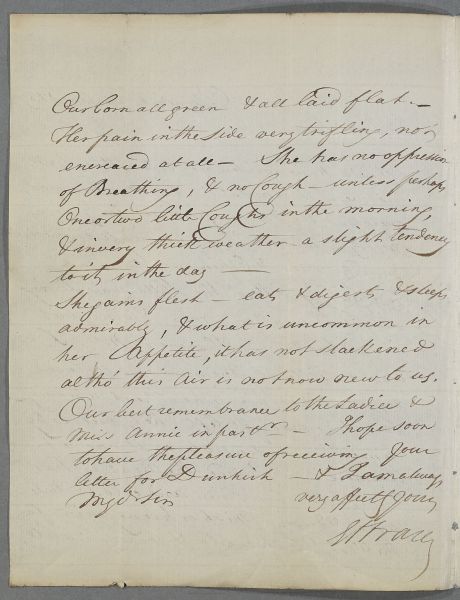 Our Corn all green & all laid flat. –
Her pain in the Side very trifling, nor
encreased at all – She has no oppression
of Breathing, & no Cough – unless perhaps
One or two little Coughs in the morning,
& in very thick weather – a slight tendency
to it, in the day —
She gains flesh – eats & digests & sleeps
admirably, & what is uncommon in
her Appetite, it has not slackened
altho' this Air is not now new to us.
Our best remembrance to the Ladies &
Miss Annie in partr. – I hope soon
to have the pleasure of receiving Your
letter for Dunkirk – & I am always
My dr Sir very affectly Yours